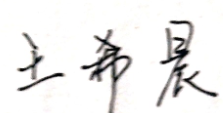 王希晨